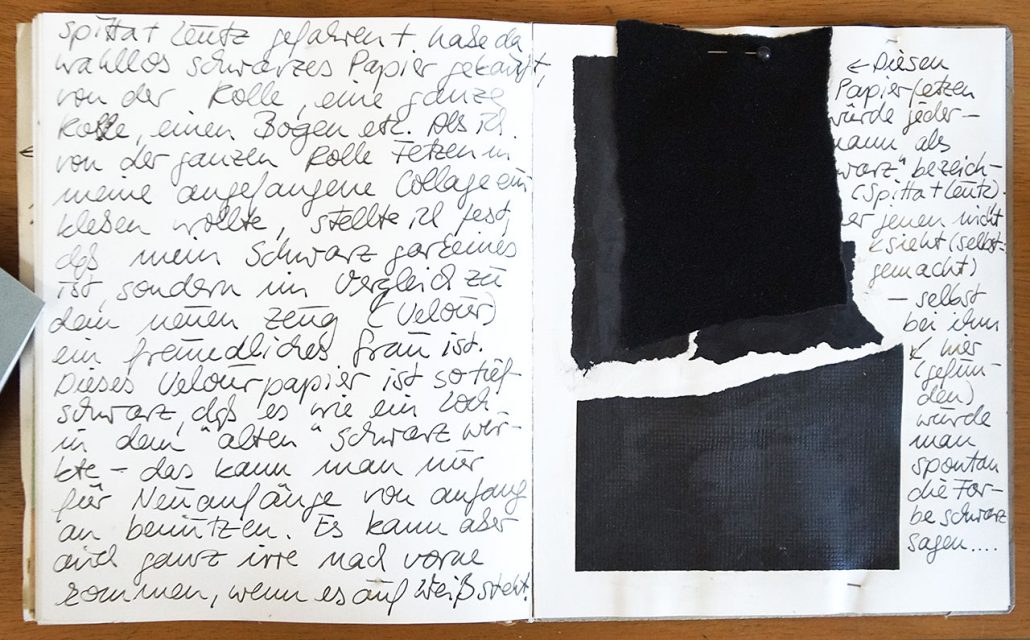 Spitta + Leutz gefahren + habe da
wahllos schwarzes Papier gekauft,
von der Rolle, eine ganze
Rolle, einen Bogen etc. Als ich
von der ganzen Rolle Fetzen in
meine angefangene Collage ein
kleben wollte, stellte ich fest,
daß mein Schwarz gar keines
ist, sondern im Vergleich zu
dem neuen Zeug (Velour)
ein freundliches Grau ist.
Dieses Velourpapier ist so tief
schwarz, daß es wie ein Loch
in dem "alten" Schwarz wir-
kte – das kann man nur
für Neuanfänge von anfang
an benützen. Es kann aber
auch ganz irre nach vorne
kommen, wenn es auf Weiß steht.
← Diesen
Papierfetzen
würde jeder-
mann als
warz" bezeich-
(Spitta + Leutz).
er jenen nicht
sieht (selbst-
gemacht)
– selbst
bei ihm
↙ hier
(gefun-
den)
würde
man
spontan
die Far-
be schwarz
sagen....